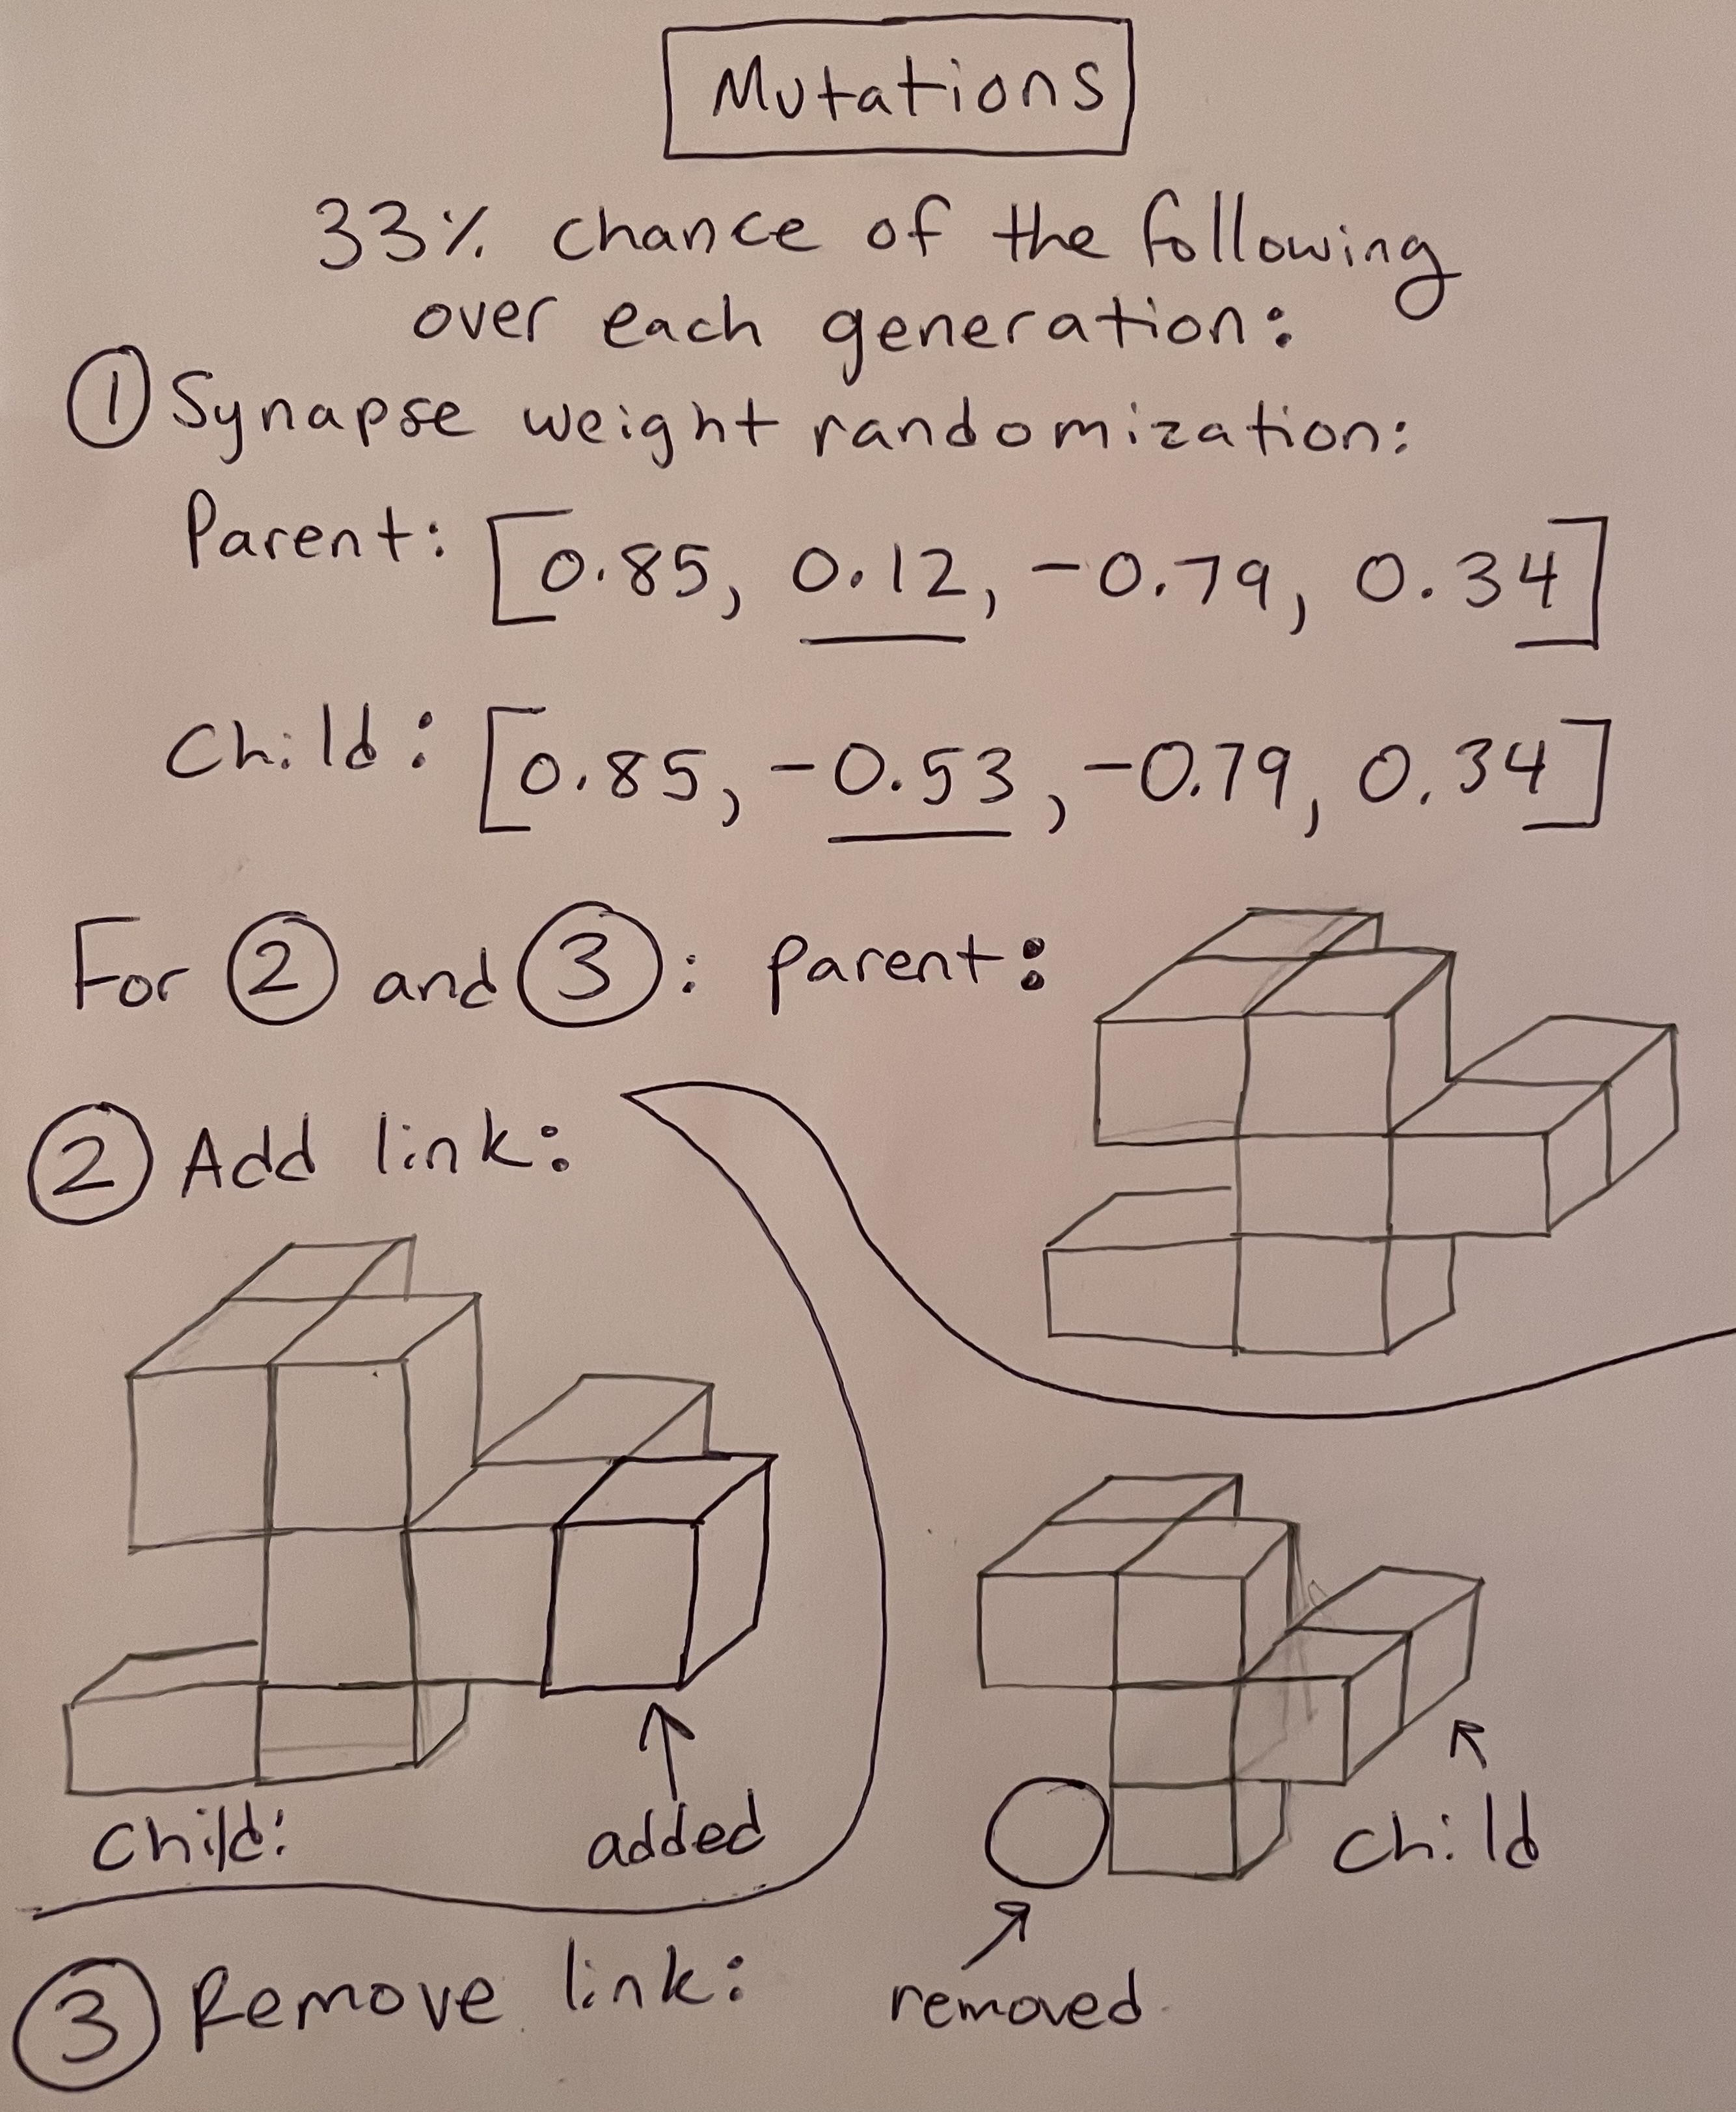 Mutations
33% chance of the following
over each generation:
① Synapse weight randomization:
Parent: [0.85, 0.12, -0.79, 0.34]
Child: [0.85, -0.53, -0.79, 0.34]
For ② and ③: parent:
② Add link:
child:
added
child
removed
③ Remove link: